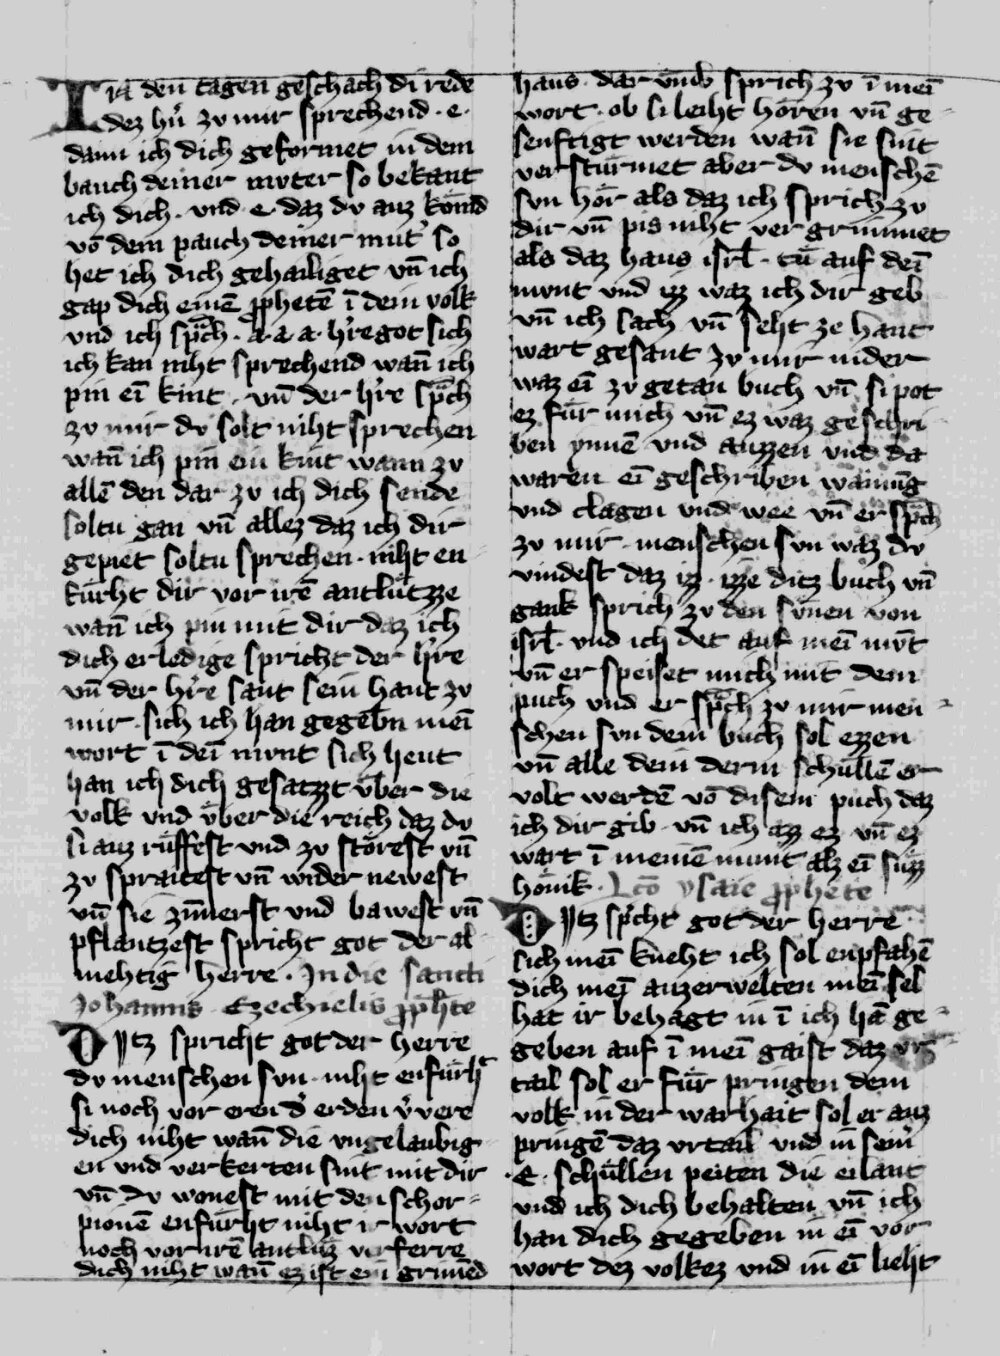 In den tagen geschach di rede
dez hr̄n zv mir sprechend · e ·
dann ich dich geformet in dem
bauch deiner mvter so bekant
ich dich · vnd · e · daz dv auz kömd
vō dem pauch deiner mut̕ so
het ich dich gehailiget vn̄ ich
gap dich einē ꝓphetē ī dem volk
vnd ich sp̄ch · a · a · a · hr̕e got sich
ich kan niht sprechend wan̄ ich
pin eī kint · vn̄ der hr̕e sp̄ch
zv mir dv solt niht sprechen
wan̄ ich pin ein kint wann zv
allē den dar zv ich dich sende
soltu gan vn̄ allez daz ich dir
gepiet soltu sprechen · niht en
fürht dir vor irē antlützze
wan̄ ich pin mit dir daz ich
dich erledige spricht der hr̕e
vn̄ der hr̕e sant sein hant zv
mir · sich ich han gegebn̄ meī
wort ī deī mvnt sich heut
han ich dich gesatzzt v̈ber die
volk vnd v̈ber die reich daz dv
si auz rüffest vnd zv störest vn̄
zv spraitest vn̄ wider newest
vn̄ sie zīmerst vnd bawest vn̄
pflantzest spricht got der al
mehtig herre · In die sancti
Johannis Ezechielis ꝓph̄te
Ditz spricht got der herre
dv menschen svn · niht enfürht
si noch vor eren d̕ erden v̕vere
dich niht wan̄ die vngelaubig
en vnd verkerten sint mit dir
vn̄ dv wonest mit den schor=
pionē enfürht niht ir wort
noch vor irē antlüz verferre
dich niht wan̄ ez ist ein grimēd
haus · dar vmb sprich zv ī meī
wort · ob si leiht hören vn̄ ge=
senftigt werden wan̄ sie sint
verstürmet aber dv menschē
svn hör als daz ich sprich zv
dir vn̄ pis niht vergrimmet
als daz haus isrl̄ · tü auf deī
mvnt vnd izz waz ich dir geb
vn̄ ich sach vn̄ seht ze hant
wart gesant zv mir nider
waz eī zv getan buch vn̄ si pot
ez für mich vn̄ ez waz geschri
ben ynnē vnd auzzen vnd da
waren eī geschriben wainūg
vnd clagen vnd wee vn̄ er sp̄ch
zv mir · menschen svn waz dv
vindest daz izz · izze ditz buch vn̄
gank sprich zv den svnen von
isrl̄ · vnd ich det auf meī mv̄t
vn̄ er speiset mich mit dem
puch vnd er sp̄ch zv mir men=
schen svn dein buch sol ezzen
vn̄ alle dein derm schüllē er
volt werdē vō disem puch daz
ich dir gib · vn̄ ich azz ez vn̄ ez
wart ī meinē munt alz eī süzz
hönik · Lcō ysaie ꝓphete
Ditz sp̕cht got der herre
sich meī kneht ich sol enpfahē
dich meī auzerwelten meī sel
hat ir behagt in ī ich hā ge=
geben auf ī meī gaist daz vr
tail sol er für pringen dem
volk in der warhait sol er auz
pringē daz vrtail vnd in̄ sein̄
· E · schüllen peiten die eilant
vnd ich dich behalten vn̄ ich
han dich gegeben in eī vor
wort dez volkez vnd in eī lieht